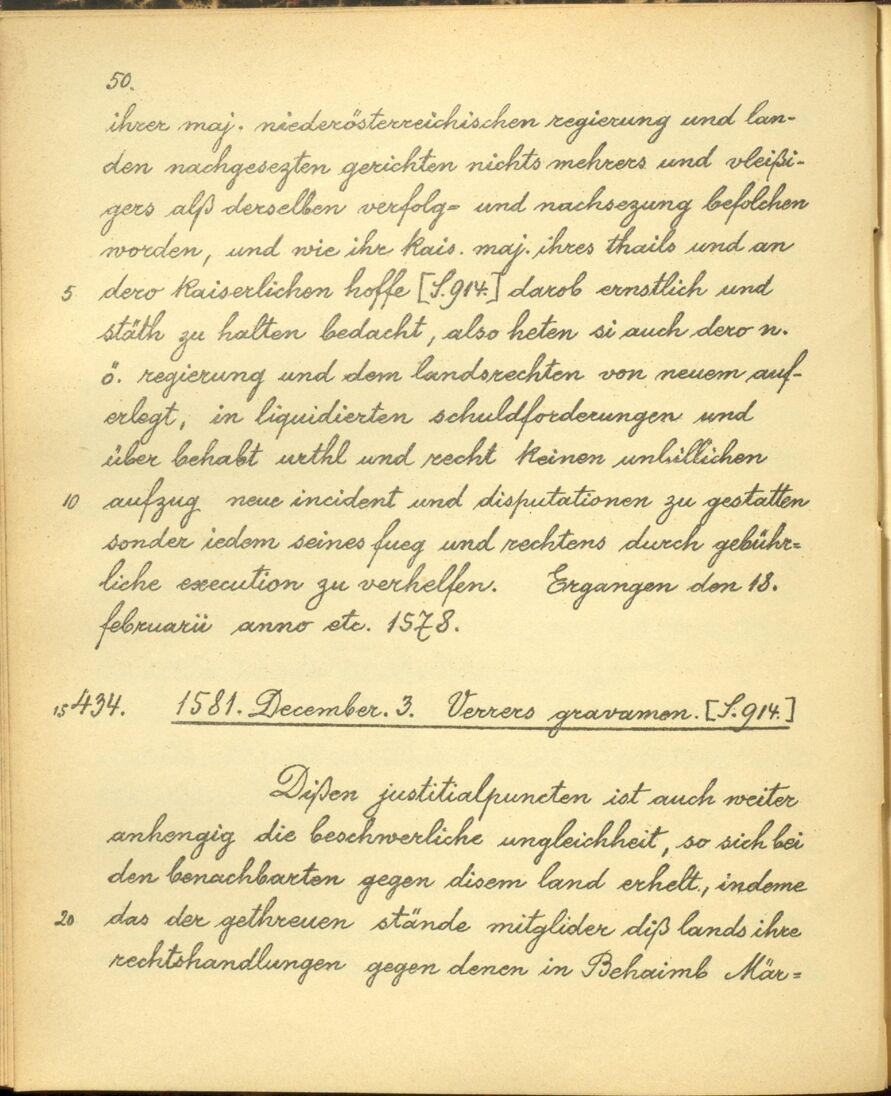 50.
ihrer maj. niederösterreichischen regierung und lan-
den nachgesezten gerichten nichts mehrers und vleißi-
gers alß derselben verfolg= und nachsezung befolchen
worden, und wie ihr kais. maj. ihres thails und an
5 dero kaiserlichen hoffe [S.914.] darob ernstlich und
stäth zu halten bedacht, also heten si auch dero n.
ö. regierung und dem landsrechten von neuem auf-
erlegt, in liquidierten schuldforderungen und
über behabt urthl und recht keinen unbillichen
10 aufzug neue incident und disputationen zu gestatten
sonder iedem seines fueg und rechtens durch gebühr=
liche execution zu verhelfen. Ergangen den 18.
februarii anno etc. 1578.
15 434. 1581. December. 3. Verrers gravamen. [S.914.]
Dißen justitialpuncten ist auch weiter
anhengig die beschwerliche ungleichheit, so sich bei
den benachbarten gegen disem land erhelt, indeme
20 das der gethreuen stände mitglider diß lands ihre
rechtshandlungen gegen denen in Behaimb Mär=